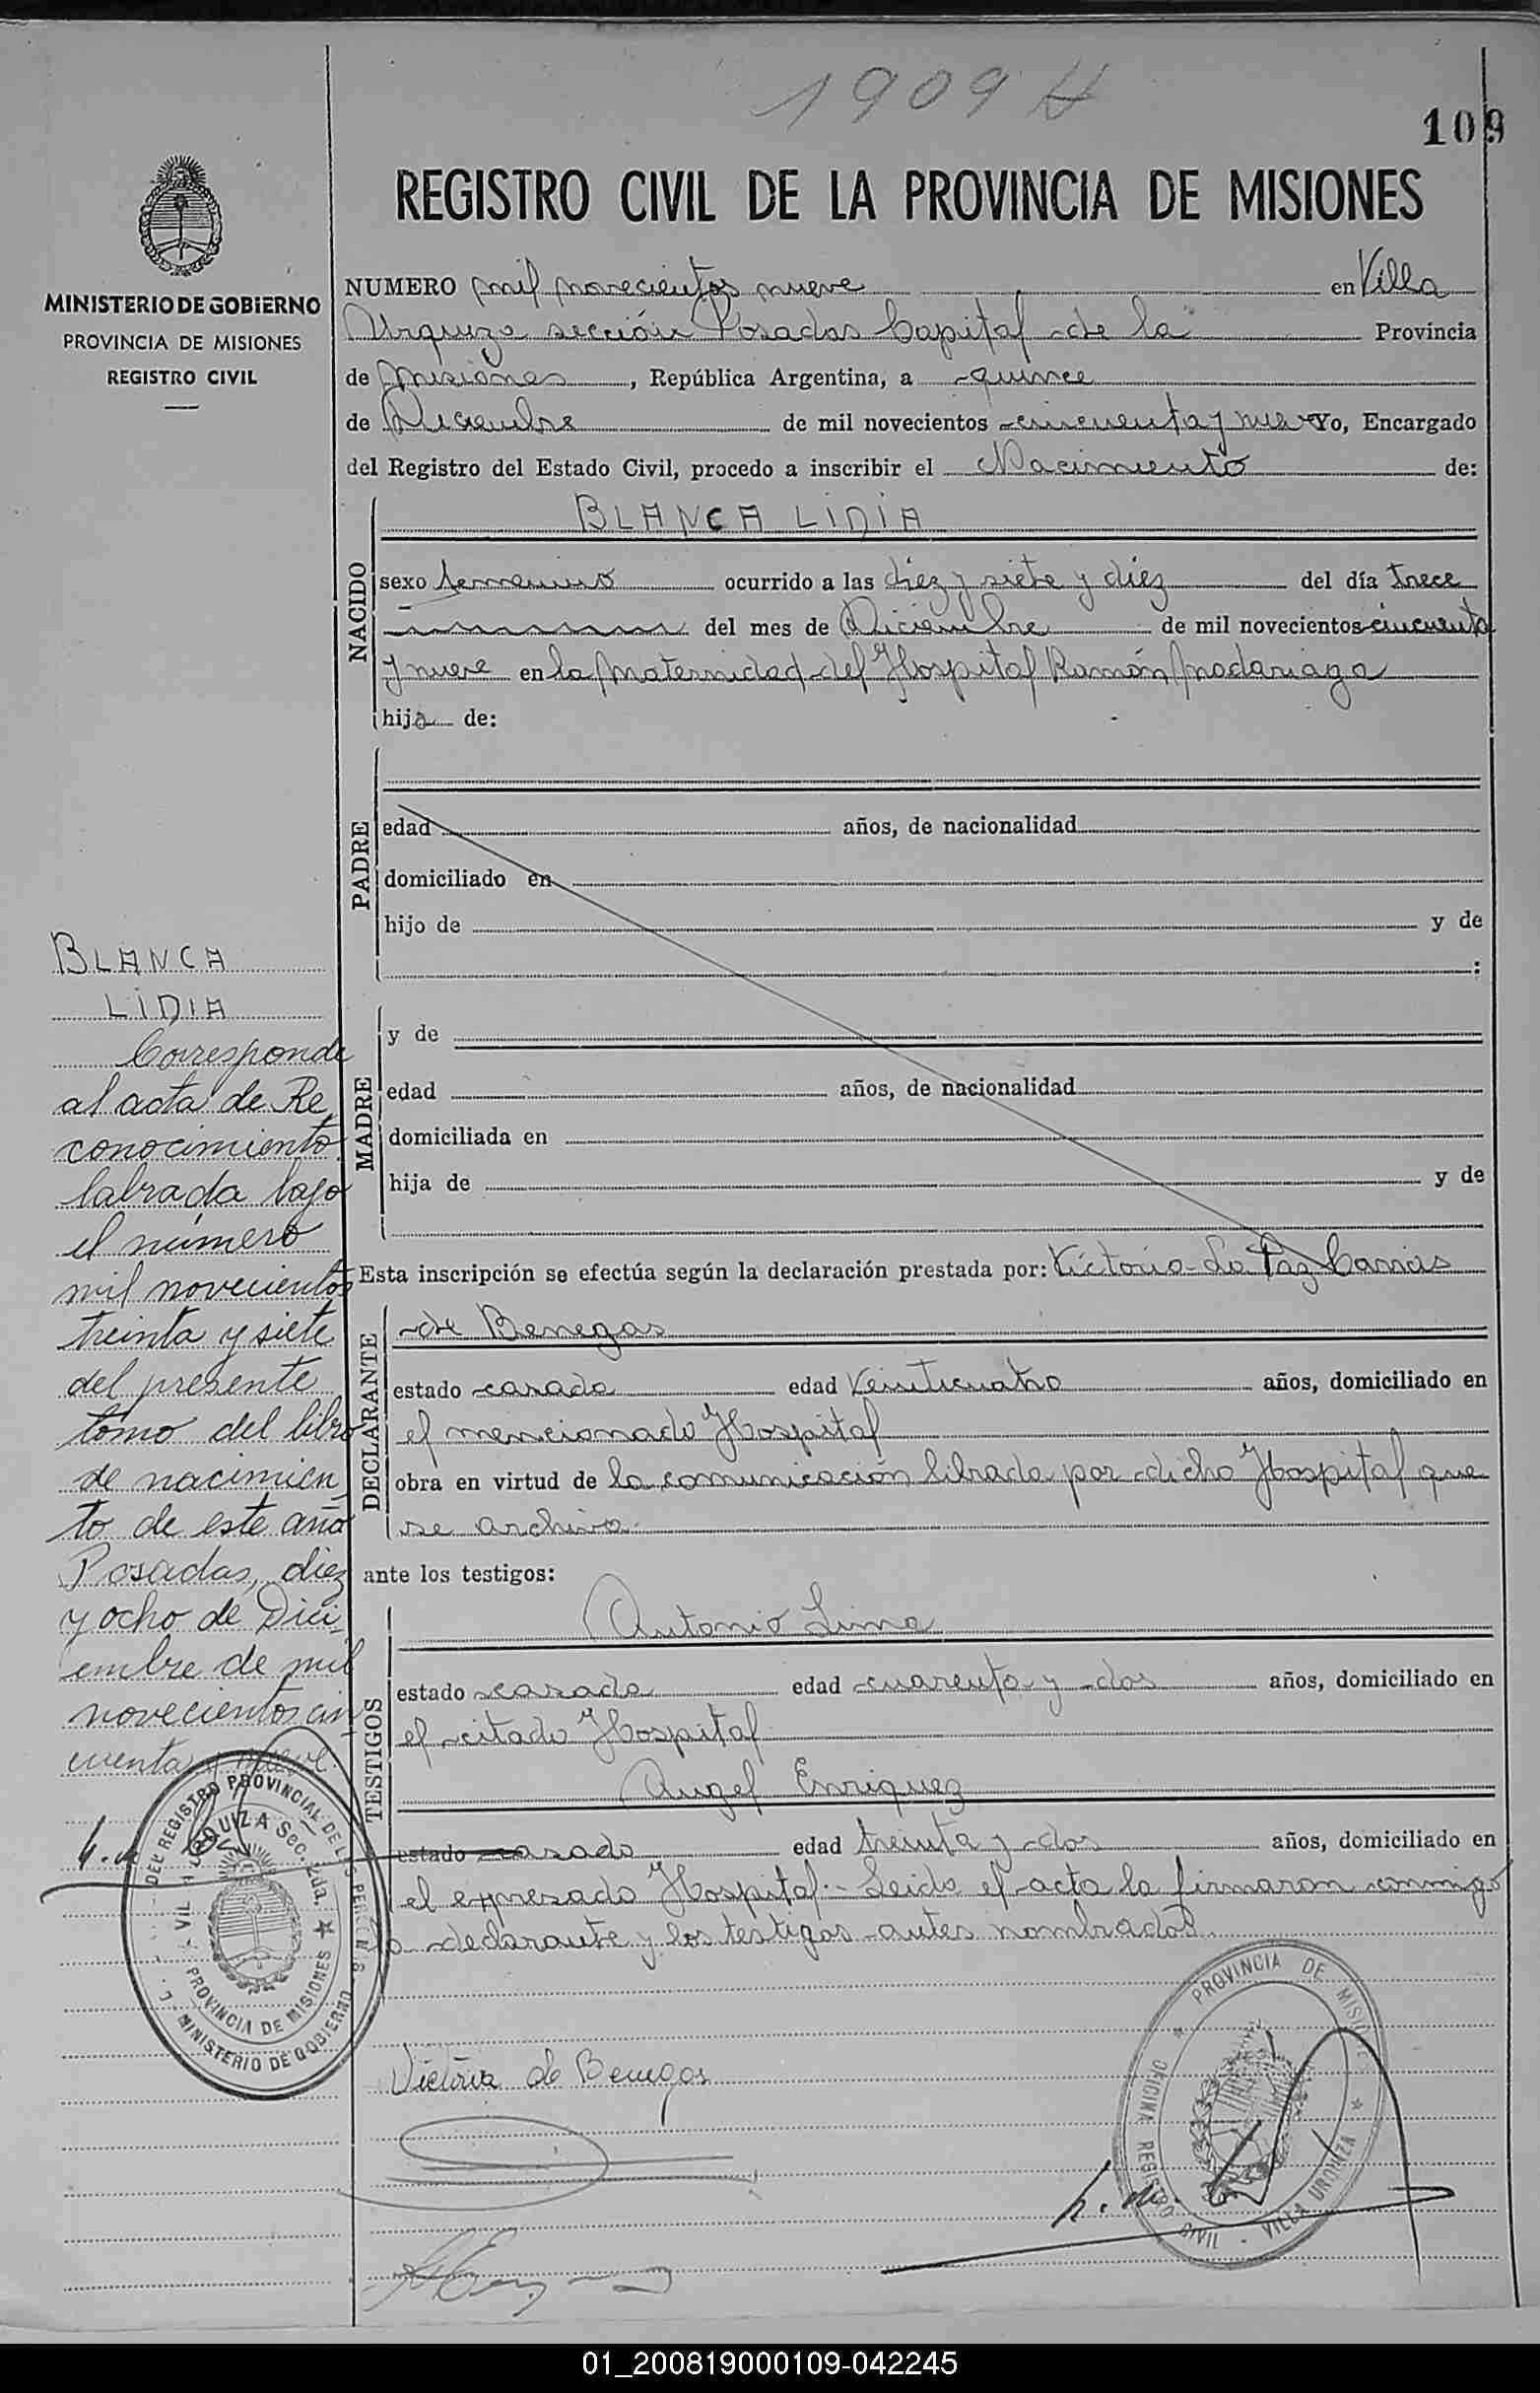 1909 H
109
REGISTRO CIVIL DE LA PROVINCIA DE MISIONES
MINISTERIO DE GOBIERNO
PROVINCIA DE MISIONES
REGISTRO CIVIL
NUMERO mil novecientos nueve en Villa
Urquiza sección Posadas Capital de la Provincia
de Misiones, República Argentina, a quince
de Diciembre de mil novecientos cincuenta y nueve Yo, Encargado
del Registro del Estado Civil, procedo a inscribir el Nacimiento de:
NACIDO
BLANCA LIDIA
sexo femenino ocurrido a las diez y siete y diez del día trece
del mes de Diciembre de mil novecientos cincuenta
y nueve en la Maternidad del Hospital Ramón Madariaga
hija de:
PADRE
edad años, de nacionalidad
domiciliado en
hijo de y de
:
MADRE
y de
edad años, de nacionalidad
domiciliada en
hija de y de
Esta inscripción se efectúa según la declaración prestada por: Victoria La Paz
DECLARANTE
de Benegas
estado casada edad Veinticuatro años, domiciliado en
el mencionado Hospital
obra en virtud de la comunicación librada por dicho Hospital que
se archiva.
ante los testigos:
TESTIGOS
Antonio Lima
estado casado edad cuarenta y dos años, domiciliado en
el citado Hospital
Angel Enriquez
estado casado edad treinta y dos años, domiciliado en
el expresado Hospital.- Leida el acta la firmaron conmigo
la declarante y los testigos antes nombrados.
Victoria de Benegas
BLANCA
LIDIA
Corresponde
al acta de Re
conocimiento
labrada bajo
el número
mil novecientos
treinta y siete
del presente
tomo del libro
de nacimien
to de este año
Posadas, diez
y ocho de Dici
embre de mil
novecientos cin
cuenta y nueve.
DEL REGISTRO PROVINCIAL DE LAS PERSONAS
URQUIZA Sec. 2da.
PROVINCIA DE MISIONES
MINISTERIO DE GOBIERNO
PROVINCIA DE MISIONES
OFICINA REGISTRO CIVIL - VILLA URQUIZA
01_200819000109-042245